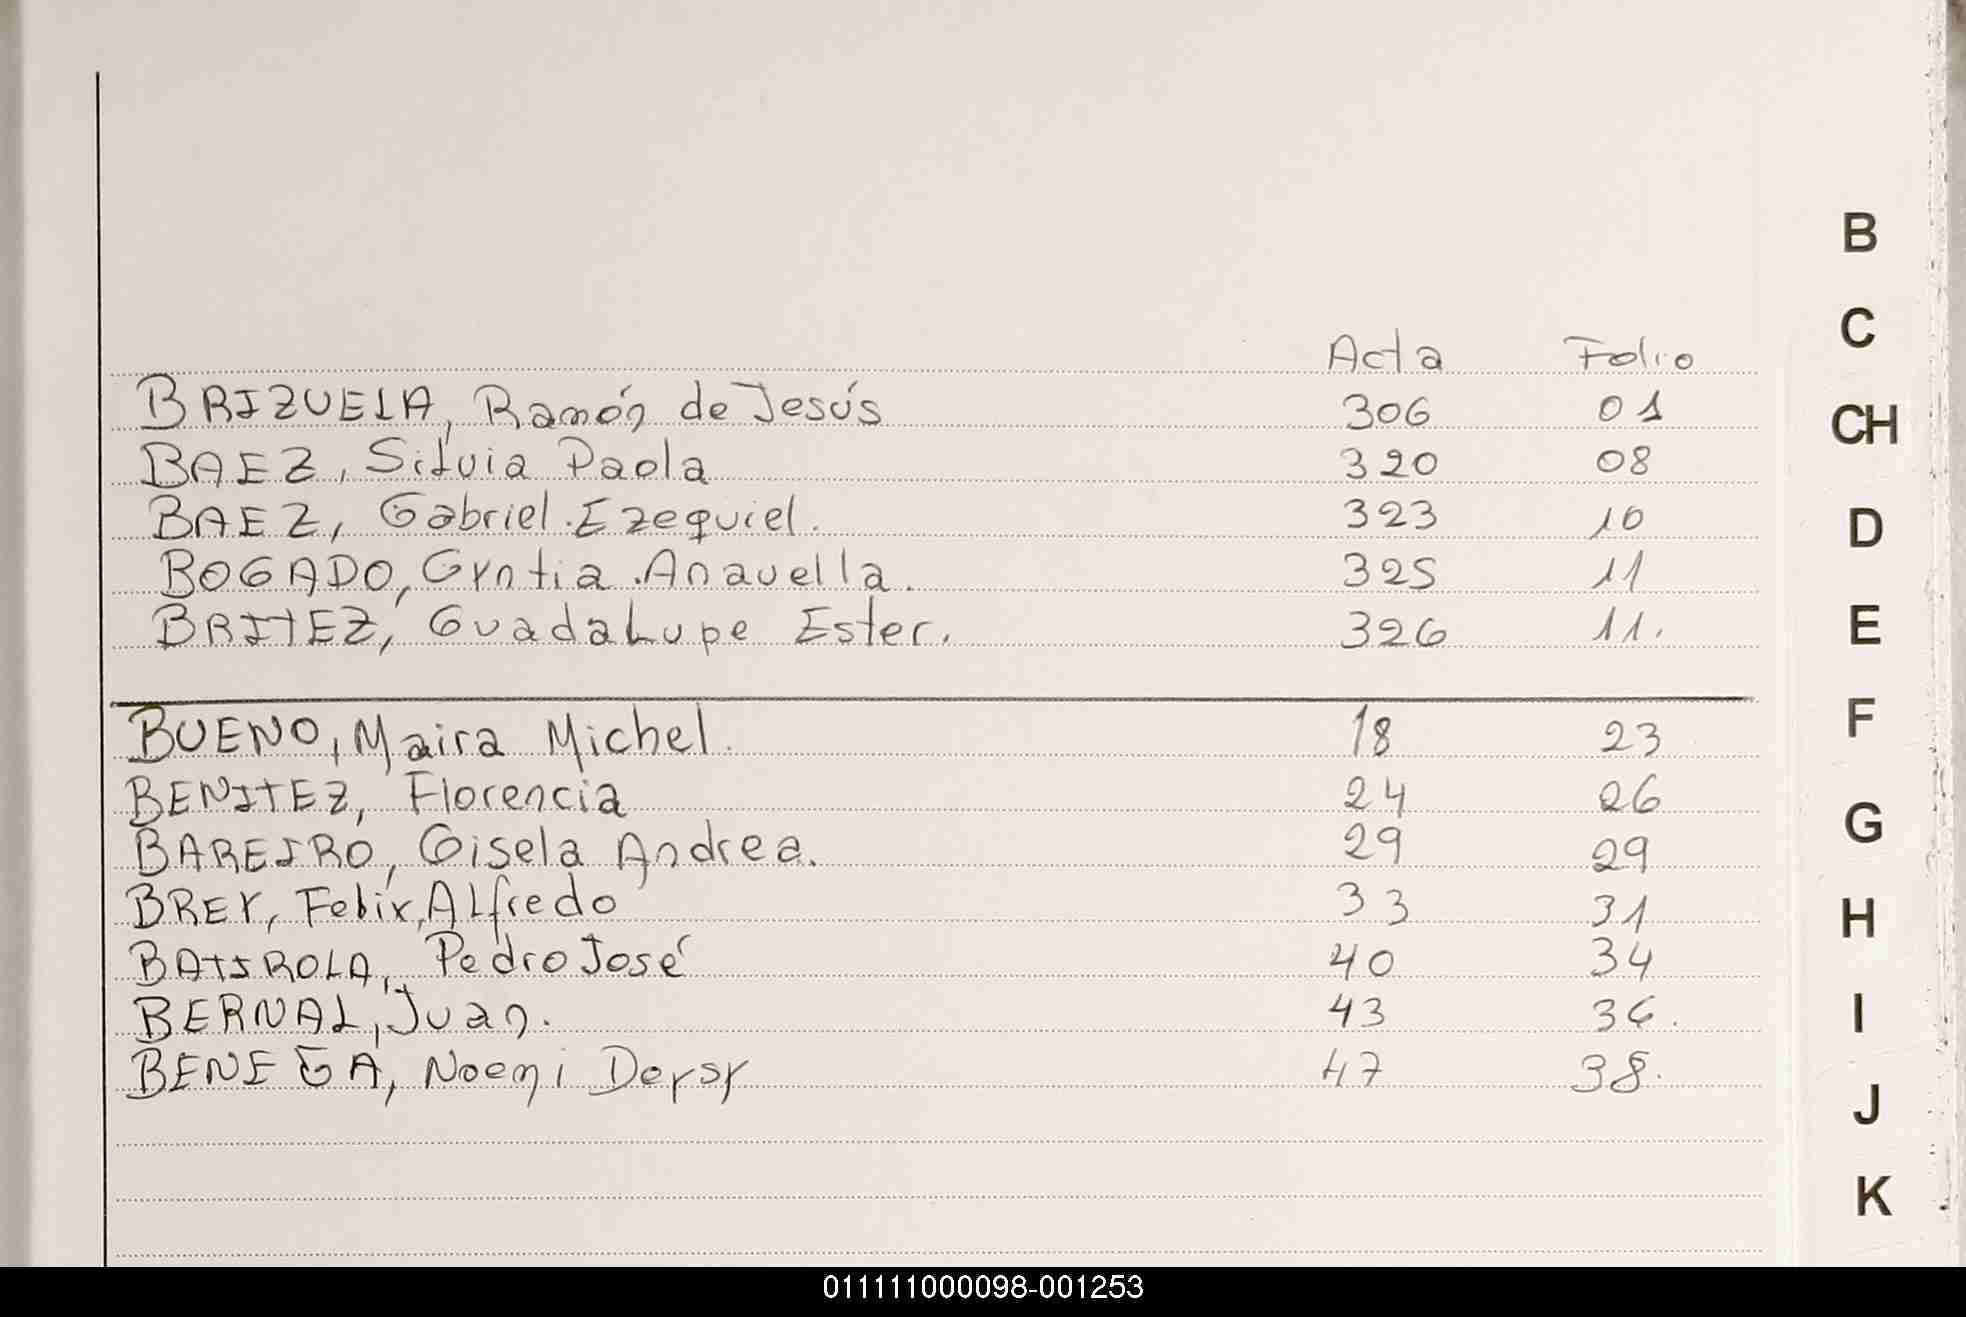 Acta Folio
BRIZUELA, Ramón de Jesús 306 01
BAEZ, Silvia Paola 320 08
BAEZ, Gabriel Ezequiel. 323 10
BOGADO, Cyntia Anavella. 325 11
BRITEZ, Guadalupe Ester. 326 11.
BUENO, Maira Michel. 18 23
BENITEZ, Florencia 24 26
BAREIRO, Gisela Andrea. 29 29
BREY, Felix Alfredo 33 31
BATIROLA, Pedro José 40 34
BERNAL, Juan. 43 36.
BENEGA, Noemi Deysy 47 38.
B
C
CH
D
E
F
G
H
I
J
K
011111000098-001253